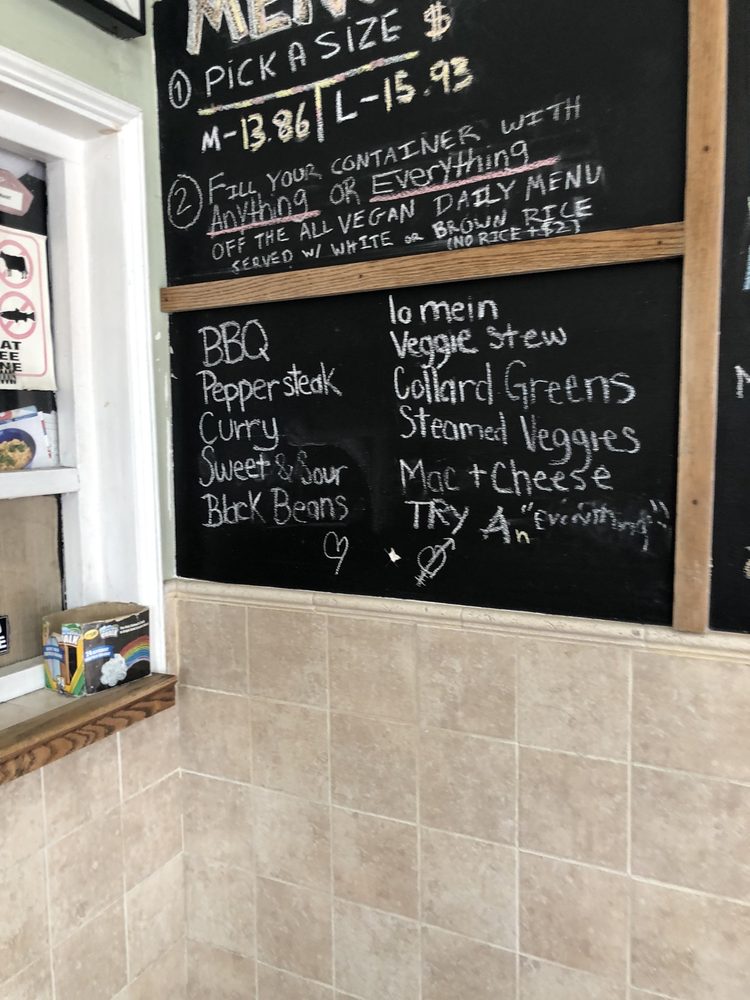 MENU
① PICK A SIZE $
M-13.86 L-15.93
② FILL YOUR CONTAINER WITH
Anything OR Everything
OFF THE ALL VEGAN DAILY MENU
SERVED W/ WHITE OR BROWN RICE
(NO RICE +$2)
BBQ
Pepper steak
Curry
Sweet & Sour
Black Beans
lo mein
Veggie stew
Collard Greens
Steamed Veggies
Mac + Cheese
TRY An "Everything"